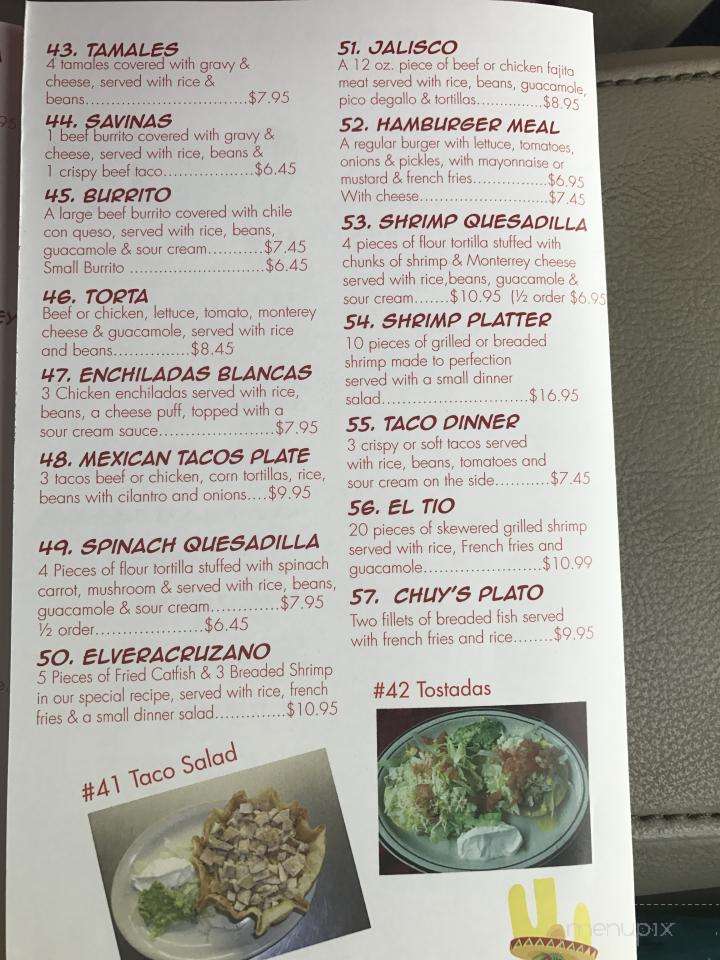 43. TAMALES
4 tamales covered with gravy &
cheese, served with rice &
beans................................$7.95
44. SAVINAS
1 beef burrito covered with gravy &
cheese, served with rice, beans &
1 crispy beef taco..................$6.45
45. BURRITO
A large beef burrito covered with chile
con queso, served with rice, beans,
guacamole & sour cream..........$7.45
Small Burrito ........................$6.45
46. TORTA
Beef or chicken, lettuce, tomato, monterey
cheese & guacamole, served with rice
and beans..............$8.45
47. ENCHILADAS BLANCAS
3 Chicken enchiladas served with rice,
beans, a cheese puff, topped with a
sour cream sauce.....................$7.95
48. MEXICAN TACOS PLATE
3 tacos beef or chicken, corn tortillas, rice,
beans with cilantro and onions....$9.95
49. SPINACH QUESADILLA
4 Pieces of flour tortilla stuffed with spinach
carrot, mushroom & served with rice, beans,
guacamole & sour cream............$7.95
½ order...................$6.45
50. ELVERACRUZANO
5 Pieces of Fried Catfish & 3 Breaded Shrimp
in our special recipe, served with rice, french
fries & a small dinner salad.............$10.95
#41 Taco Salad
51. JALISCO
A 12 oz. piece of beef or chicken fajita
meat served with rice, beans, guacamole,
pico degallo & tortillas.............$8.95
52. HAMBURGER MEAL
A regular burger with lettuce, tomatoes,
onions & pickles, with mayonnaise or
mustard & french fries..............$6.95
With cheese..........................$7.45
53. SHRIMP QUESADILLA
4 pieces of flour tortilla stuffed with
chunks of shrimp & Monterrey cheese
served with rice,beans, guacamole &
sour cream.......$10.95 (½ order $6.95
54. SHRIMP PLATTER
10 pieces of grilled or breaded
shrimp made to perfection
served with a small dinner
salad.............................$16.95
55. TACO DINNER
3 crispy or soft tacos served
with rice, beans, tomatoes and
sour cream on the side...........$7.45
56. EL TIO
20 pieces of skewered grilled shrimp
served with rice, French fries and
guacamole.......................$10.99
57. CHUY'S PLATO
Two fillets of breaded fish served
with french fries and rice........$9.95
#42 Tostadas
menupix